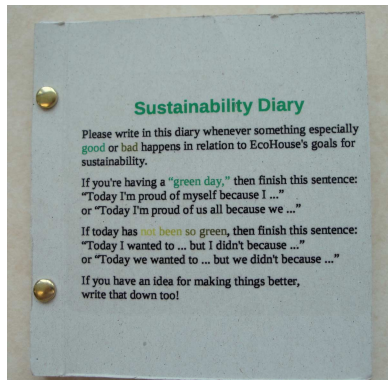 Sustainability Diary
Please write in this diary whenever something especially
good or bad happens in relation to EcoHouse's goals for
sustainability.
If you're having a "green day," then finish this sentence:
"Today I'm proud of myself because I ..."
or "Today I'm proud of us all because we ..."
If today has not been so green, then finish this sentence:
"Today I wanted to ... but I didn't because ..."
or "Today we wanted to ... but we didn't because ..."
If you have an idea for making things better,
write that down too!